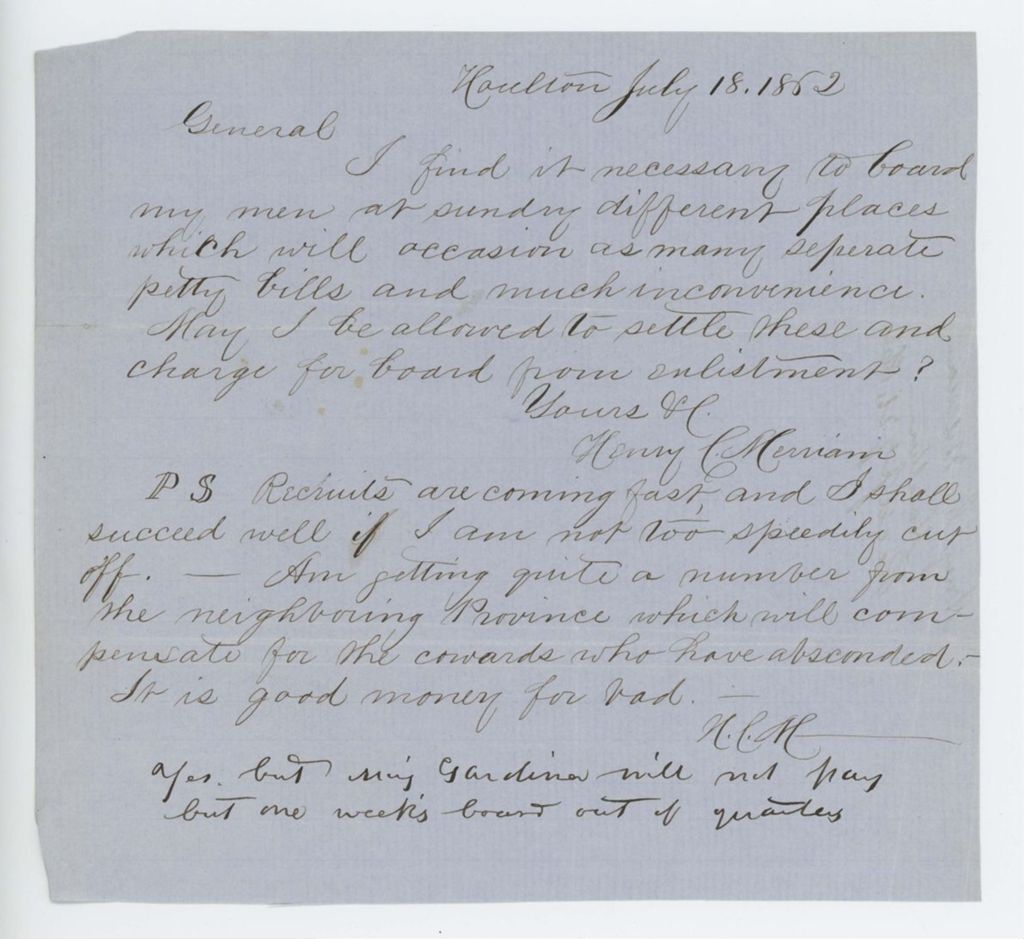 Houlton July 18. 1862
General
I find it necessary to board
my men at sundry different places
which will occasion as many seperate
petty bills and much inconvenience.
May I be allowed to settle these and
charge for board from enlistment?
Yours &c.
Henry C. Merriam
P S Recruits are coming fast, and I shall
succeed well if I am not too speedily cut
off. — Am getting quite a number from
the neighboring Province which will com-
pensate for the cowards who have absconded. -
It is good money for bad. —
H. C. M
Yes. but Maj Gardiner will not pay
but one week's board out of quarters